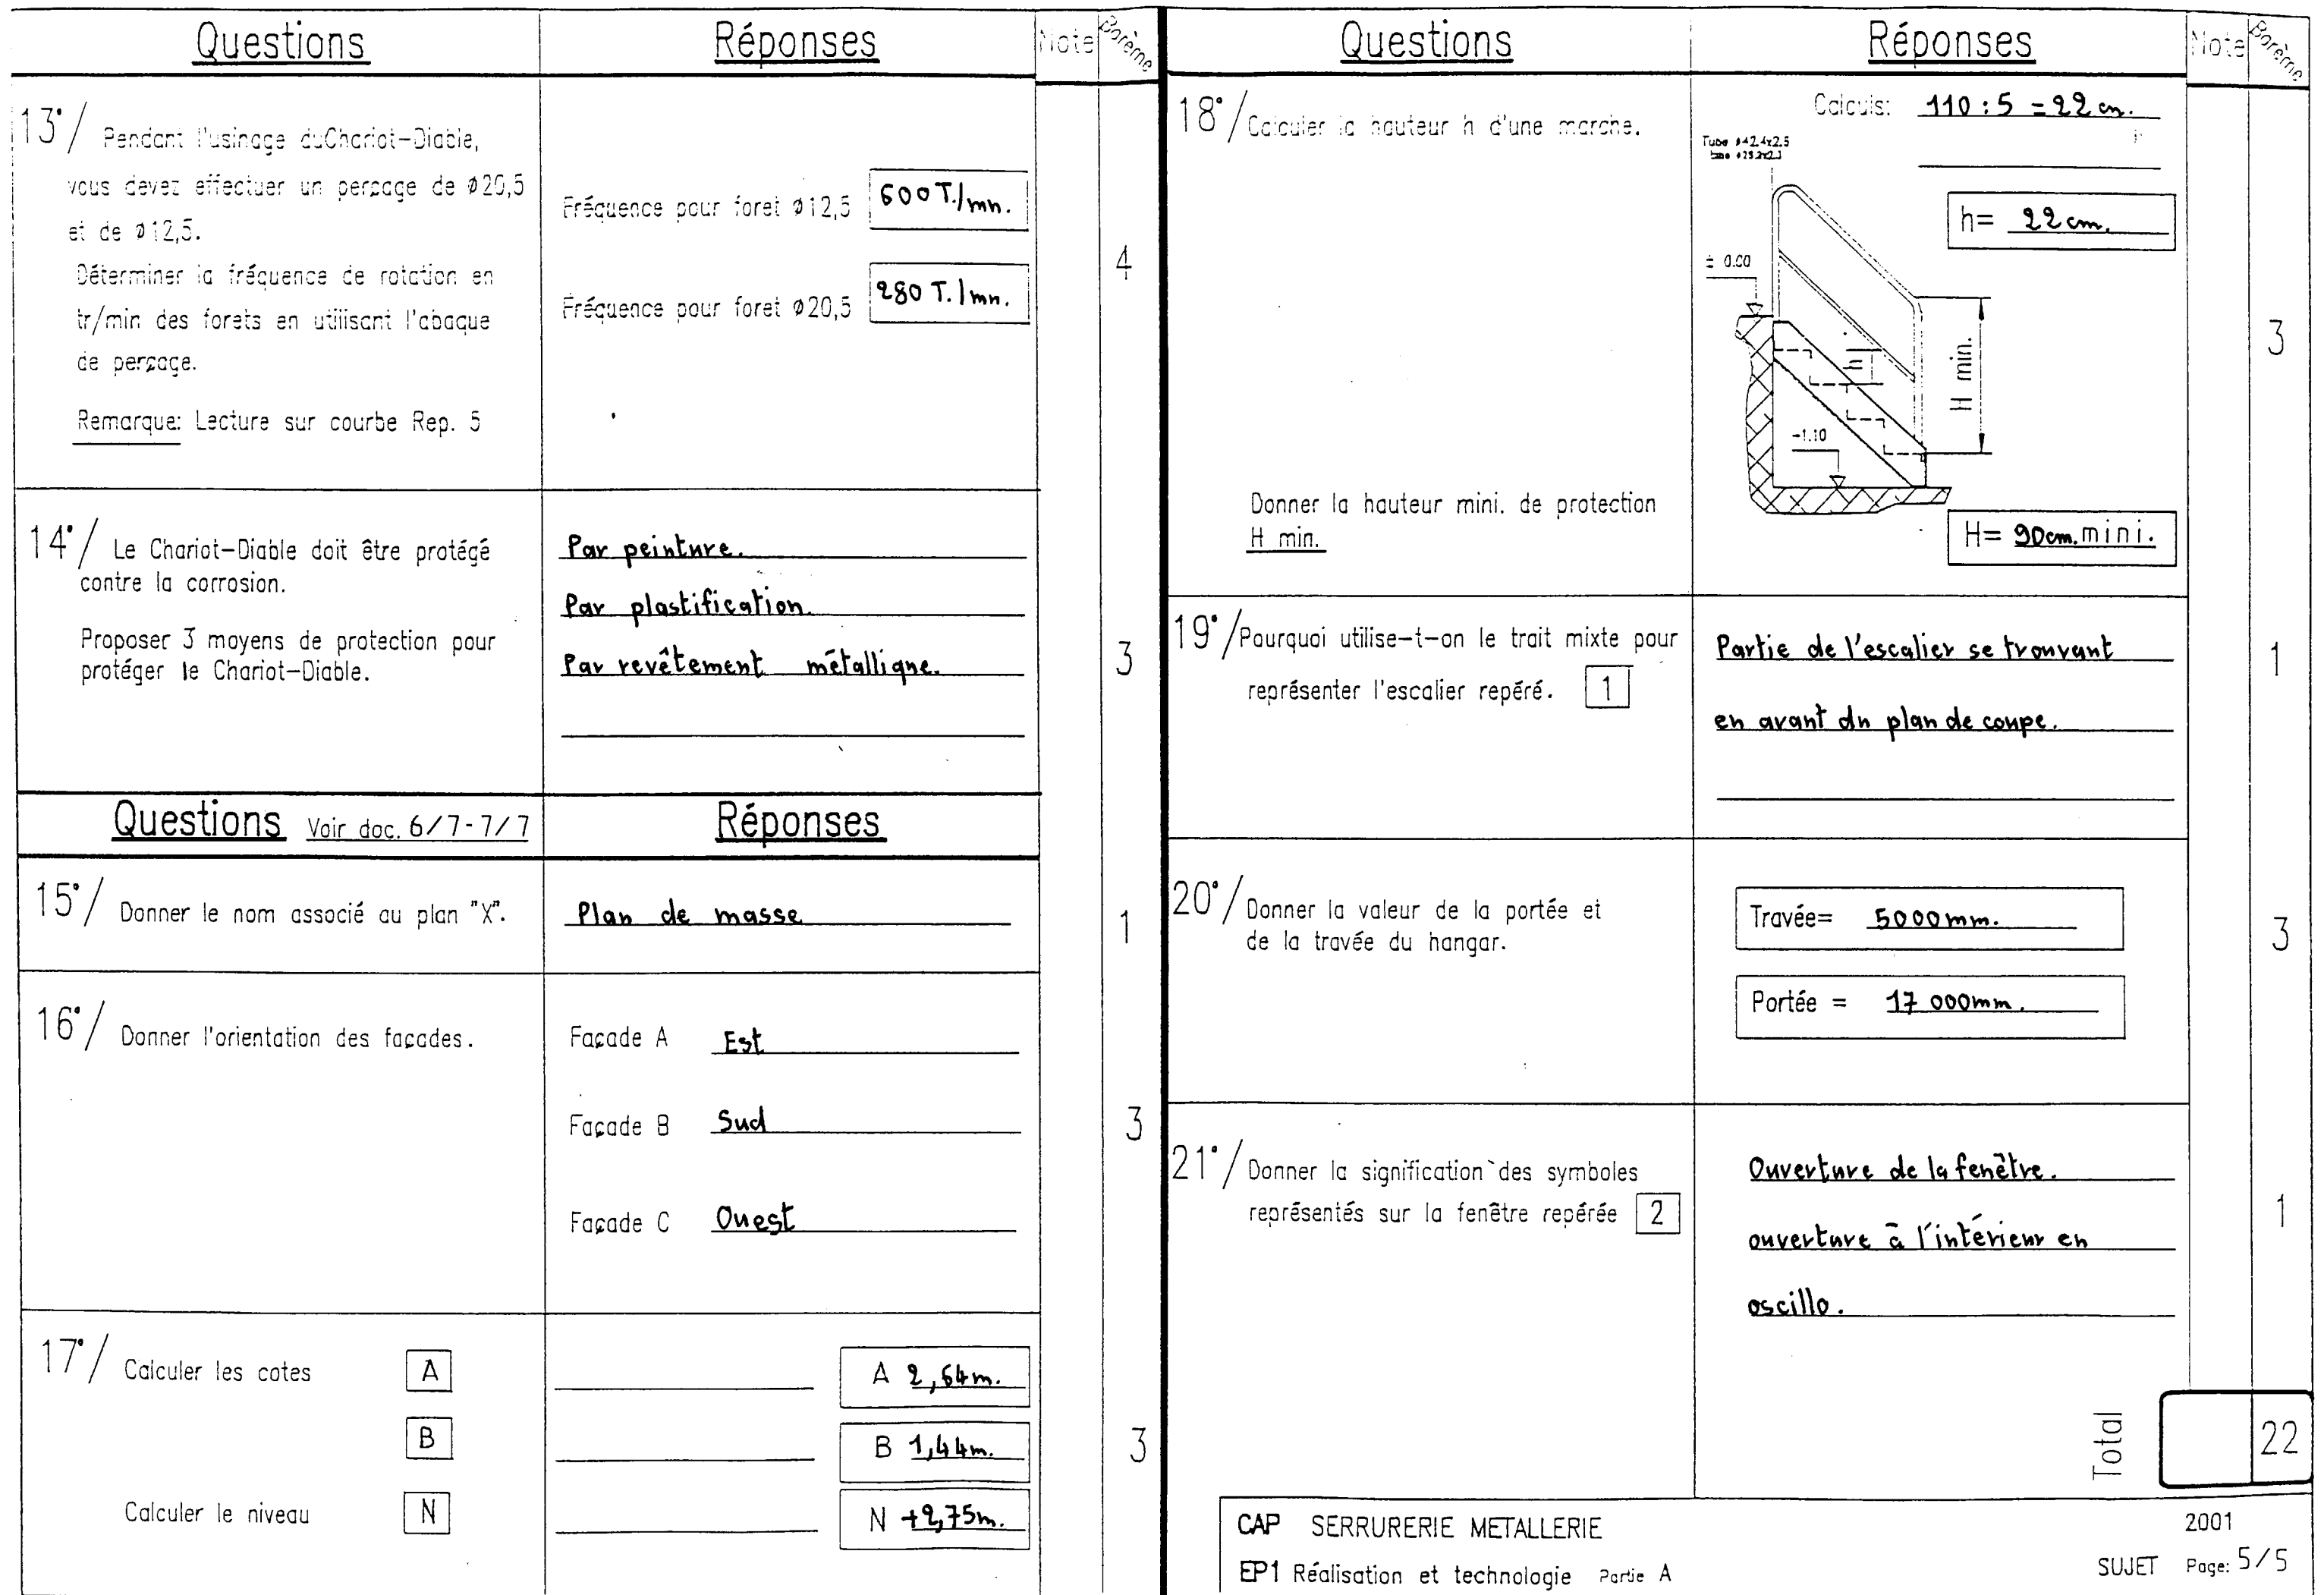 Questions Réponses Note Barème
13°/ Pendant l'usinage duChariot-Diable,
vous devez effectuer un perçage de ø20,5
et de ø12,5.
Déterminer la fréquence de rotation en
tr/min des forets en utilisant l'abaque
de perçage.
Remarque: Lecture sur courbe Rep. 5
Fréquence pour foret ø12,5 600 T./mn.
Fréquence pour foret ø20,5 280 T./mn.
4
14°/ Le Chariot-Diable doit être protégé
contre la corrosion.
Proposer 3 moyens de protection pour
protéger le Chariot-Diable.
Par peinture.
Par plastification.
Par revêtement métallique.
3
Questions Voir doc. 6/7-7/7 Réponses
15°/ Donner le nom associé au plan "X".
Plan de masse
1
16°/ Donner l'orientation des façades.
Façade A Est
Façade B Sud
Façade C Ouest
3
17°/ Calculer les cotes A
B
Calculer le niveau N
A 2,64m.
B 1,44m.
N +2,75m.
3
Questions Réponses Note Barème
18°/ Calculer la hauteur h d'une marche.
Calculs: 110 : 5 = 22 cm.
Tube ø42.4x2.5
h= 22 cm.
± 0.00
h
H min.
-1.10
Donner la hauteur mini. de protection
H min.
H= 90cm. mini.
3
19°/ Pourquoi utilise-t-on le trait mixte pour
représenter l'escalier repéré. 1
Partie de l'escalier se trouvant
en avant du plan de coupe.
1
20°/ Donner la valeur de la portée et
de la travée du hangar.
Travée= 5000mm.
Portée = 17 000mm.
3
21°/ Donner la signification des symboles
représentés sur la fenêtre repérée 2
Ouverture de la fenêtre.
ouverture à l'intérieur en
oscillo.
1
Total 22
CAP SERRURERIE METALLERIE 2001
EP1 Réalisation et technologie Partie A SUJET Page: 5/5